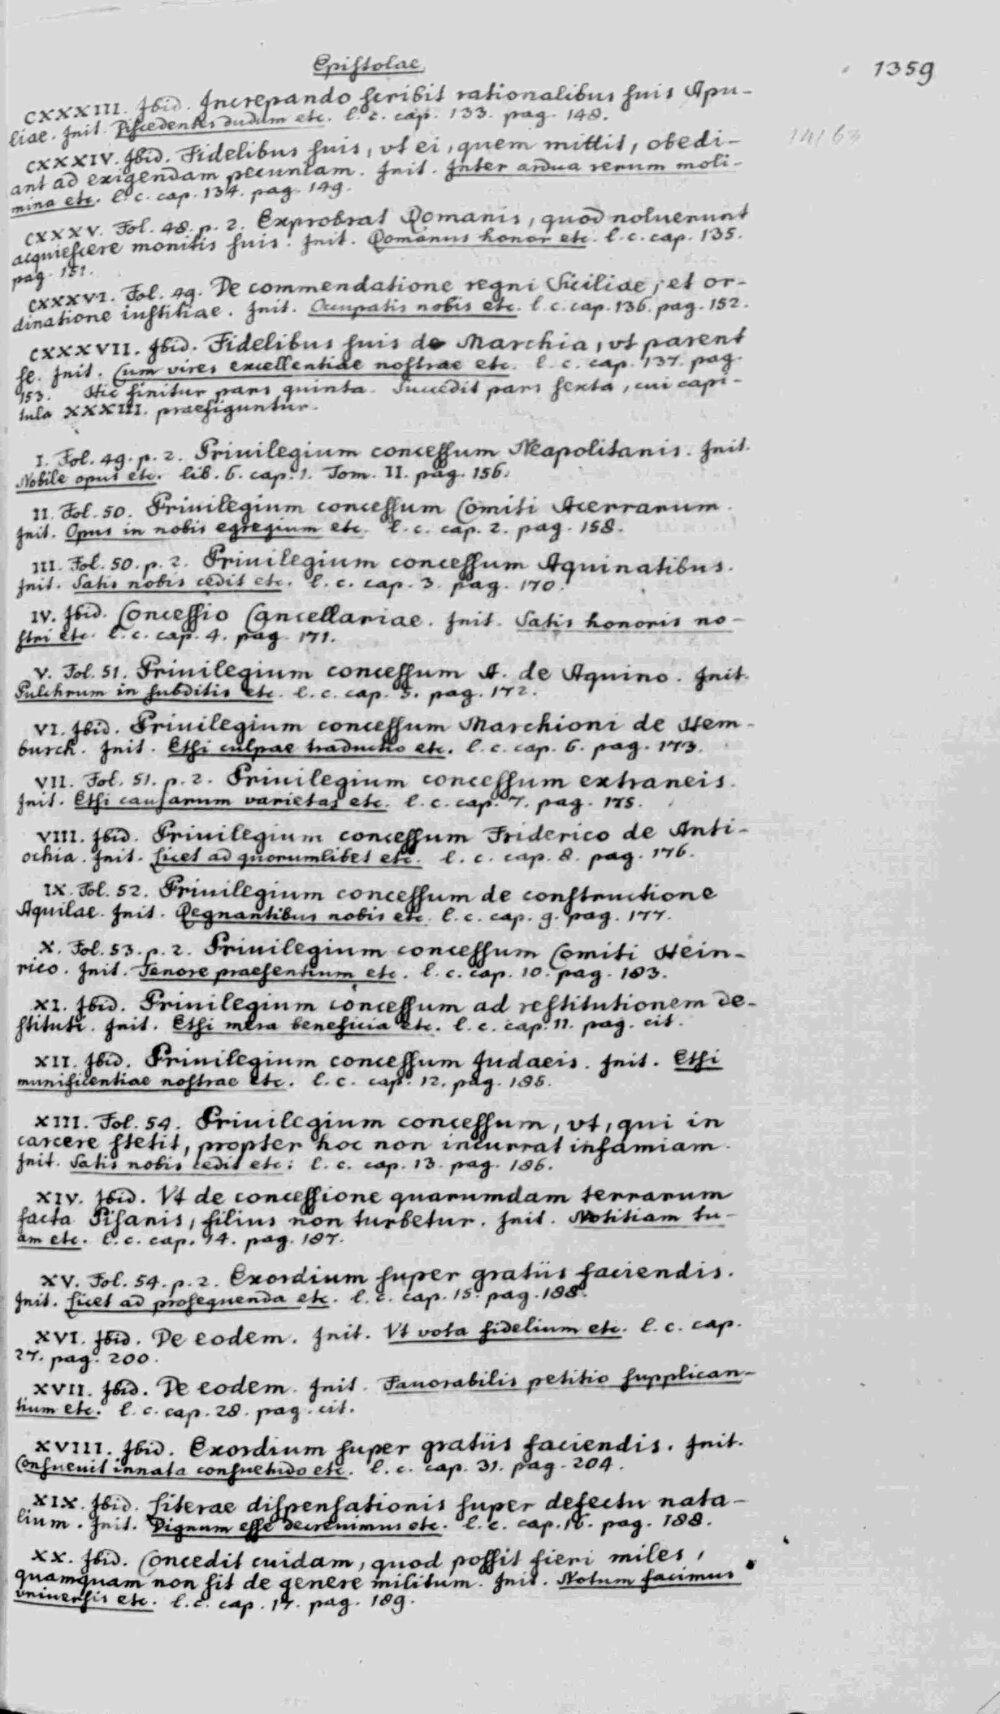 Epistolae
1359
CXXXIII. Ibid. Increpando scribit rationalibus suis Apu-
liae. Init. Discedentes dudum etc. l. c. cap. 133. pag. 148.
14163
CXXXIV. Ibid. Fidelibus suis, vt ei, quem mittit, obedi-
ant ad exigendam pecuniam. Init. Inter ardua rerum moli-
mina etc. l. c. cap. 134. pag. 149.
CXXXV. Fol. 48. p. 2. Exprobrat Romanis, quod noluerunt
acquiescere monitis suis. Init. Romanus honor etc. l. c. cap. 135.
pag. 151.
CXXXVI. Fol. 49. De commendatione regni Siciliae, et or-
dinatione iustitiae. Init. Occupatis nobis etc. l. c. cap. 136. pag. 152.
CXXXVII. Ibid. Fidelibus suis de Marchia, vt parent
se. Init. Cum vires excellentiae nostrae etc. l. c. cap. 137. pag.
153. Hic finitur pars quinta. Succedit pars sexta, cui capi-
tula XXXIII. praefiguntur.
I. Fol. 49. p. 2. Priuilegium concessum Neapolitanis. Init.
Nobile opus etc. lib. 6. cap. 1. Tom. II. pag. 156.
II. Fol. 50. Priuilegium concessum Comiti Acerrarum.
Init. Opus in nobis egregium etc. l. c. cap. 2. pag. 158.
III. Fol. 50. p. 2. Priuilegium concessum Aquinatibus.
Init. Satis nobis cedit etc. l. c. cap. 3. pag. 170.
IV. Ibid. Concessio Cancellariae. Init. Satis honoris no-
stri etc. l. c. cap. 4. pag. 171.
V. Fol. 51. Priuilegium concessum A. de Aquino. Init.
Pulchrum in subditis etc. l. c. cap. 5. pag. 172.
VI. Ibid. Priuilegium concessum Marchioni de Hem-
burch. Init. Etsi culpae traductio etc. l. c. cap. 6. pag. 173.
VII. Fol. 51. p. 2. Priuilegium concessum extraneis.
Init. Etsi causarum varietas etc. l. c. cap. 7. pag. 175.
VIII. Ibid. Priuilegium concessum Friderico de Anti-
ochia. Init. Licet ad quorumlibet etc. l. c. cap. 8. pag. 176.
IX. Fol. 52. Priuilegium concessum de constructione
Aquilae. Init. Regnantibus nobis etc. l. c. cap. 9. pag. 177.
X. Fol. 53. p. 2. Priuilegium concessum Comiti Hein-
rico. Init. Tenore praesentium etc. l. c. cap. 10. pag. 183.
XI. Ibid. Priuilegium concessum ad restitutionem de-
stituti. Init. Etsi mera beneficia etc. l. c. cap. 11. pag. cit.
XII. Ibid. Priuilegium concessum Judaeis. Init. Etsi
munificentiae nostrae etc. l. c. cap. 12. pag. 185.
XIII. Fol. 54. Priuilegium concessum, vt, qui in
carcere stetit, propter hoc non incurrat infamiam.
Init. Satis nobis cedit etc: l. c. cap. 13. pag. 186.
XIV. Ibid. Vt de concessione quarumdam terrarum
facta Pisanis, filius non turbetur. Init. Notitiam tu-
am etc. l. c. cap. 14. pag. 187.
XV. Fol. 54. p. 2. Exordium super gratiis faciendis.
Init. Licet ad prosequenda etc. l. c. cap. 15. pag. 188.
XVI. Ibid. De eodem. Init. Vt vota fidelium etc. l. c. cap.
27. pag. 200.
XVII. Ibid. De eodem. Init. Fauorabilis petitio supplican-
tium etc. l. c. cap. 28. pag. cit.
XVIII. Ibid. Exordium super gratiis faciendis. Init.
Consueuit innata consuetudo etc. l. c. cap. 31. pag. 204.
XIX. Ibid. Literae dispensationis super defectu nata-
lium. Init. Dignum esse decreuimus etc. l. c. cap. 16. pag. 188.
XX. Ibid. Concedit cuidam, quod possit fieri miles,
quamquam non sit de genere militum. Init. Notum facimus
vniuersis etc. l. c. cap. 17. pag. 189.